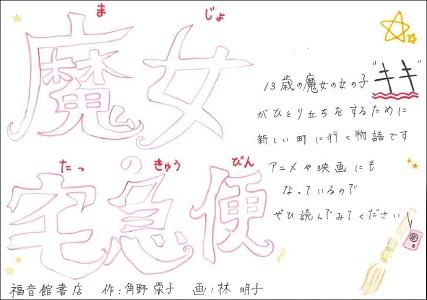 ま じょ
魔女
の
たっ きゅう びん
宅急便
13歳の魔女の女の子"キキ"
がひとり立ちをするために
新しい町に行く物語です
アニメや映画にも
なっているので
ぜひ読んでみてください!
福音館書店 作:角野栄子 画:林明子